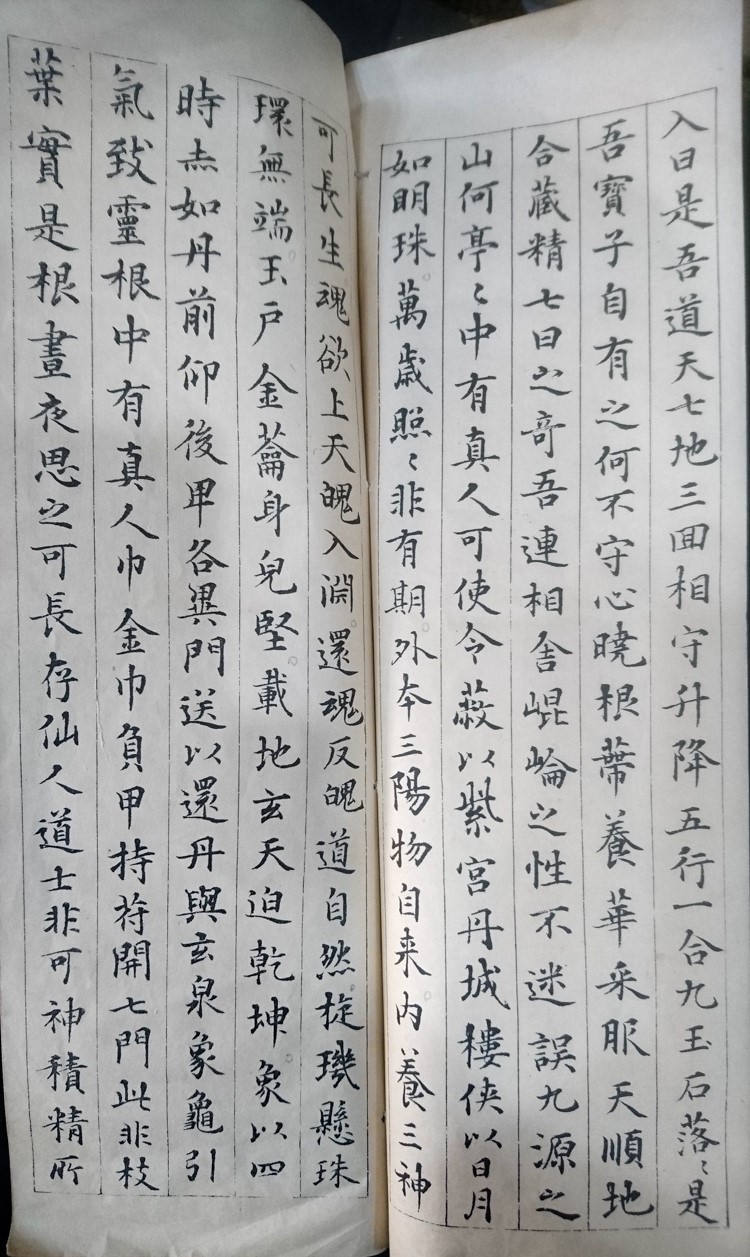 入日是吾道天七地三回相守升降五行一合九玉石落〻是
吾寶子自有之何不守心曉根蒂養華采服天順地
合藏精七日之奇吾連相舍崐崘之性不迷誤九源之
山何亭〻中有真人可使令蔽以紫宮丹城樓俠以日月
如明珠萬歲照〻非有期外本三陽物自来内養三神
可長生魂欲上天魄入淵還魂反魄道自然㫌璣懸珠
環無端玉戶金蘥身皃堅載地玄天迫乾坤象以四
時赤如丹前仰後卑各異門送以還丹與玄泉象龜引
氣致靈根中有真人巾金巾負甲持苻開七門此非枝
葉實是根晝夜思之可長存仙人道士非可神積精所